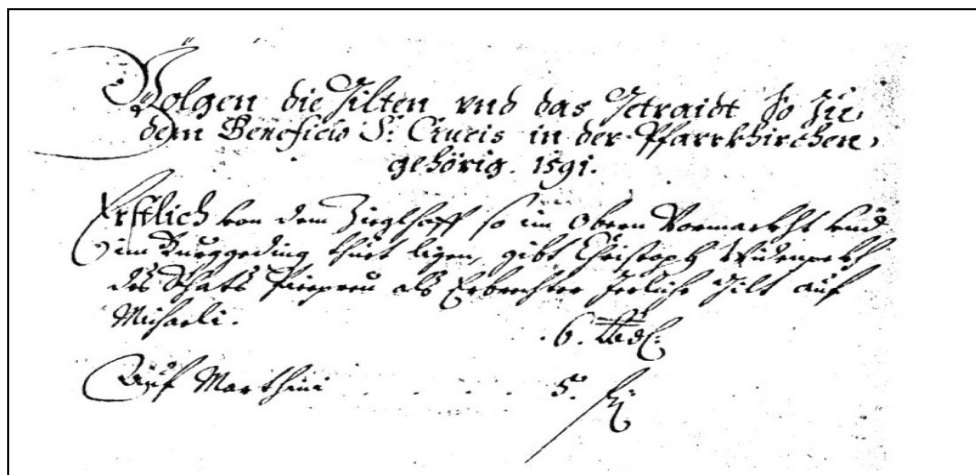 Volgen die Gilten vnd das Getraidt so zu
dem Beneficio S. Crucis in der Pfarrkhirchen
gehörig. 1591.
Erstlich von dem Zieglhoff so im Obern Vormarkht vnd
im Burggeding thuet ligen, gibt Christoph
des Raths Pierpreu als Erbrechter Jerliche Gilt auf
Michaeli. 6. lb dl.
Auf Marthini . . . . . . 5. ß